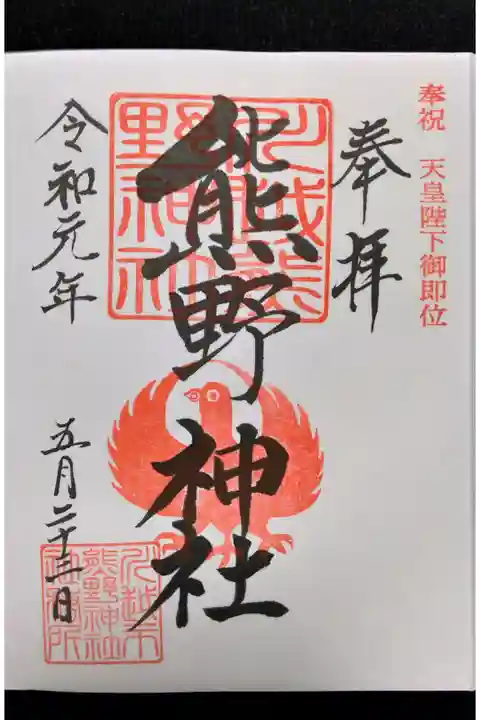 奉祝 天皇陛下御即位
奉拝
熊野神社
川越熊
野神社
令和元年
五月二十三日
川越市
熊野神社
社務所